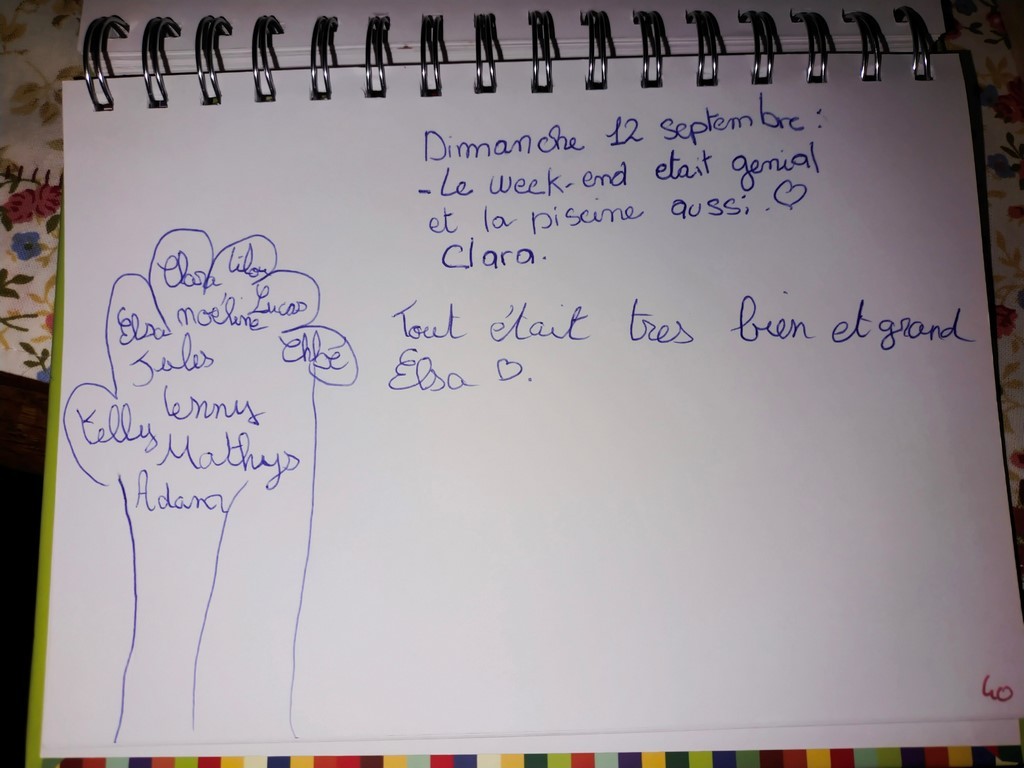 Dimmanche 12 septembre :
- Le week-end etait genial
et la piscine aussi. ♡
Clara.
Tout était tres bien et grand
Elsa ♡.
Clara Lilou
Elsa Noéline Lucas
Jules Chloé
Kelly Lenny
Mathys
Adam
40